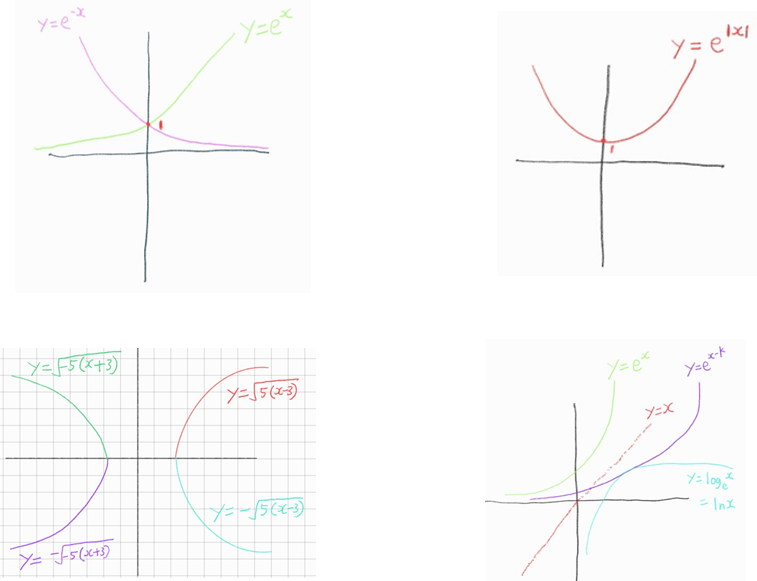 y=e^-x
y=e^x
1
y=e^|x|
1
y=√-5(x+3)
y=√5(x-3)
y=-√5(x-3)
y=-√-5(x+3)
y=e^x
y=e^x-k
y=x
y=logₑx
=lnx